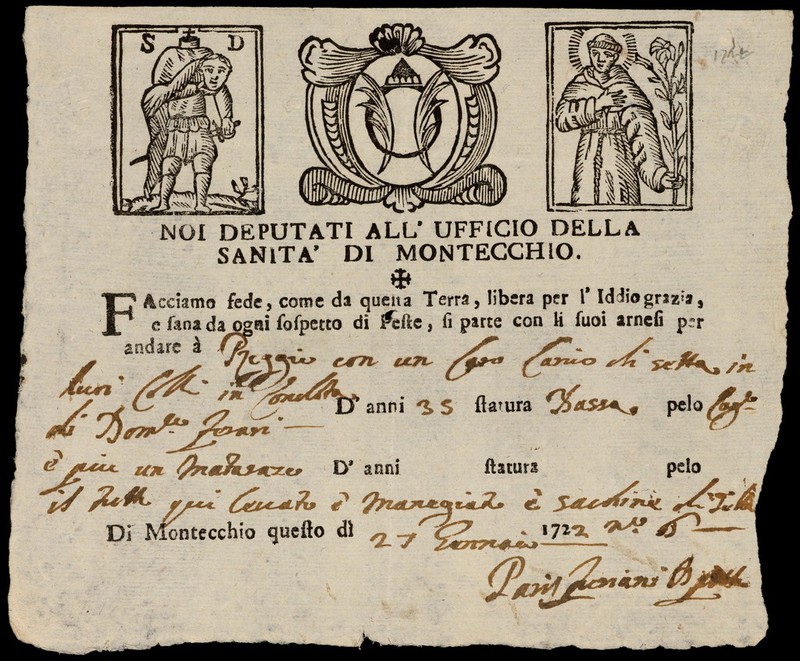 S D
NOI DEPUTATI ALL' UFFICIO DELLA
SANITA' DI MONTECCHIO.
FAcciamo fede, come da questa Terra, libera per l' Iddio grazia,
e sana da ogni sospetto di Peste, si parte con li suoi arnesi per
andare à Reggio con un Caro Carico di setta in
in
D' anni 35 statura Bassa. pelo
di Dom.co Ferari
è più un Matarazo D' anni statura pelo
il tutto qui è è di
Di Montecchio questo dì 27 Gennaio 1722 n.o 6